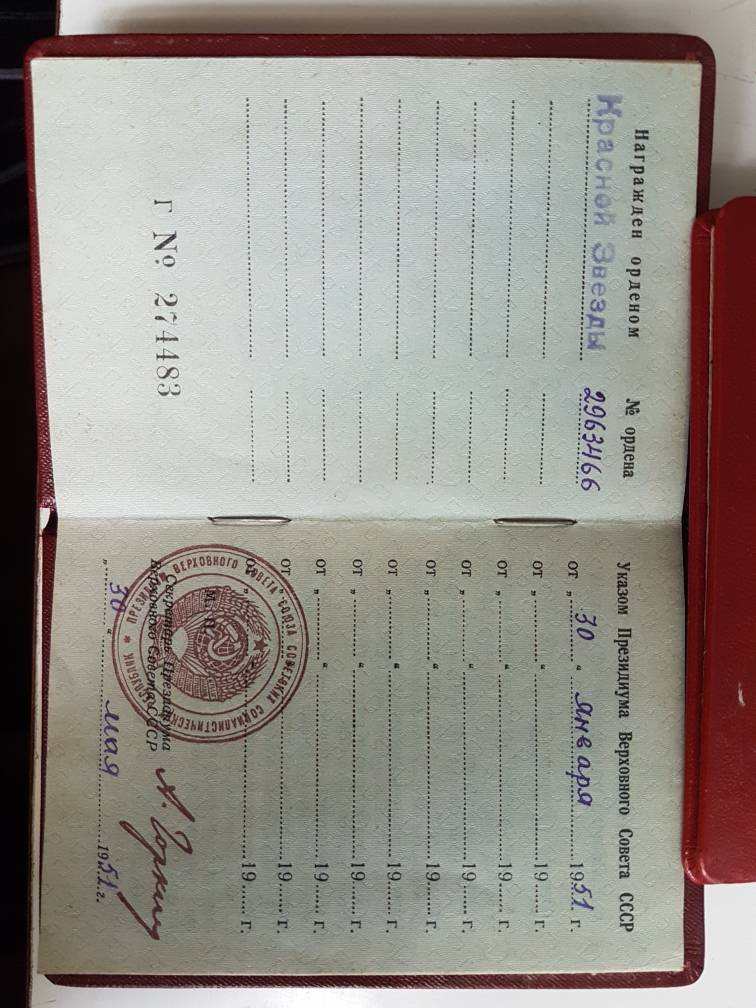 Награжден орденом № ордена
Красной Звезды 2963466
Г № 274483
Указом Президиума Верховного Совета СССР
от „30“ января 1951 г.
от „ “ 19 г.
от „ “ 19 г.
от „ “ 19 г.
от „ “ 19 г.
от „ “ 19 г.
от „ “ 19 г.
от „ “ 19 г.
от „ “ 19 г.
от „ “ 19 г.
М. П.
Секретарь Президиума
Верховного Совета СССР
А. Горкин
„30“ мая 1951 г.
ПРЕЗИДИУМ ВЕРХОВНОГО СОВЕТА СОЮЗА СОВЕТСКИХ СОЦИАЛИСТИЧЕСКИХ РЕСПУБЛИК